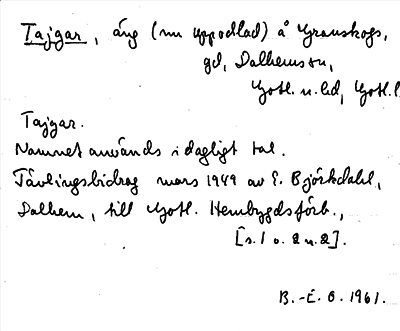 Tajgar, äng (nu uppodlad) å Granskogs,
gd, Dalhems sn,
Gotl. n. hd, Gotl. l
Tajgar.
Namnet används i dagligt tal.
Tävlingsbidrag mars 1949 av E. Björkdahl,
Dalhem, till Gotl. Hembygdsförb.,
[s. 1 o. 2 n. 2].
B.-E. O. 1961.